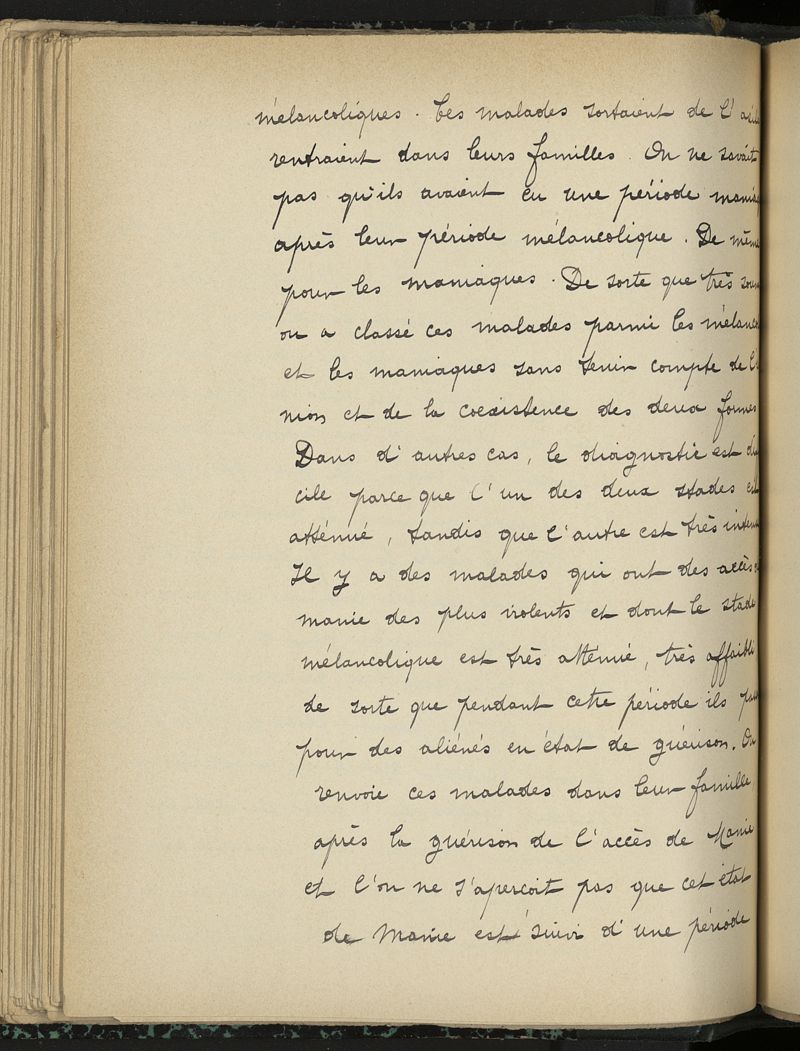 mélancoliques. Ces malades sortaient de l'
rentraient dans leurs familles. On ne savait
pas qu'ils avaient eu une période
après leur période mélancolique. De même
pour les maniaques. De sorte que très
on a classé ces malades parmi les
et les maniaques sans tenir compte de
nion et de la coexistence des deux formes
Dans d'autres cas, le diagnostic est
cile parce que l'un des deux stades est
atténué, tandis que l'autre est très
Il y a des malades qui ont des accès
manie des plus violents et dont le stade
mélancolique est très atténué, très affaibli
de sorte que pendant cette période ils
pour des aliénés en état de guérison. On
renvoie ces malades dans leur famille,
après la guérison de l'accès de Manie
et l'on ne s'aperçoit pas que cet état
de Manie est suivi d'une période